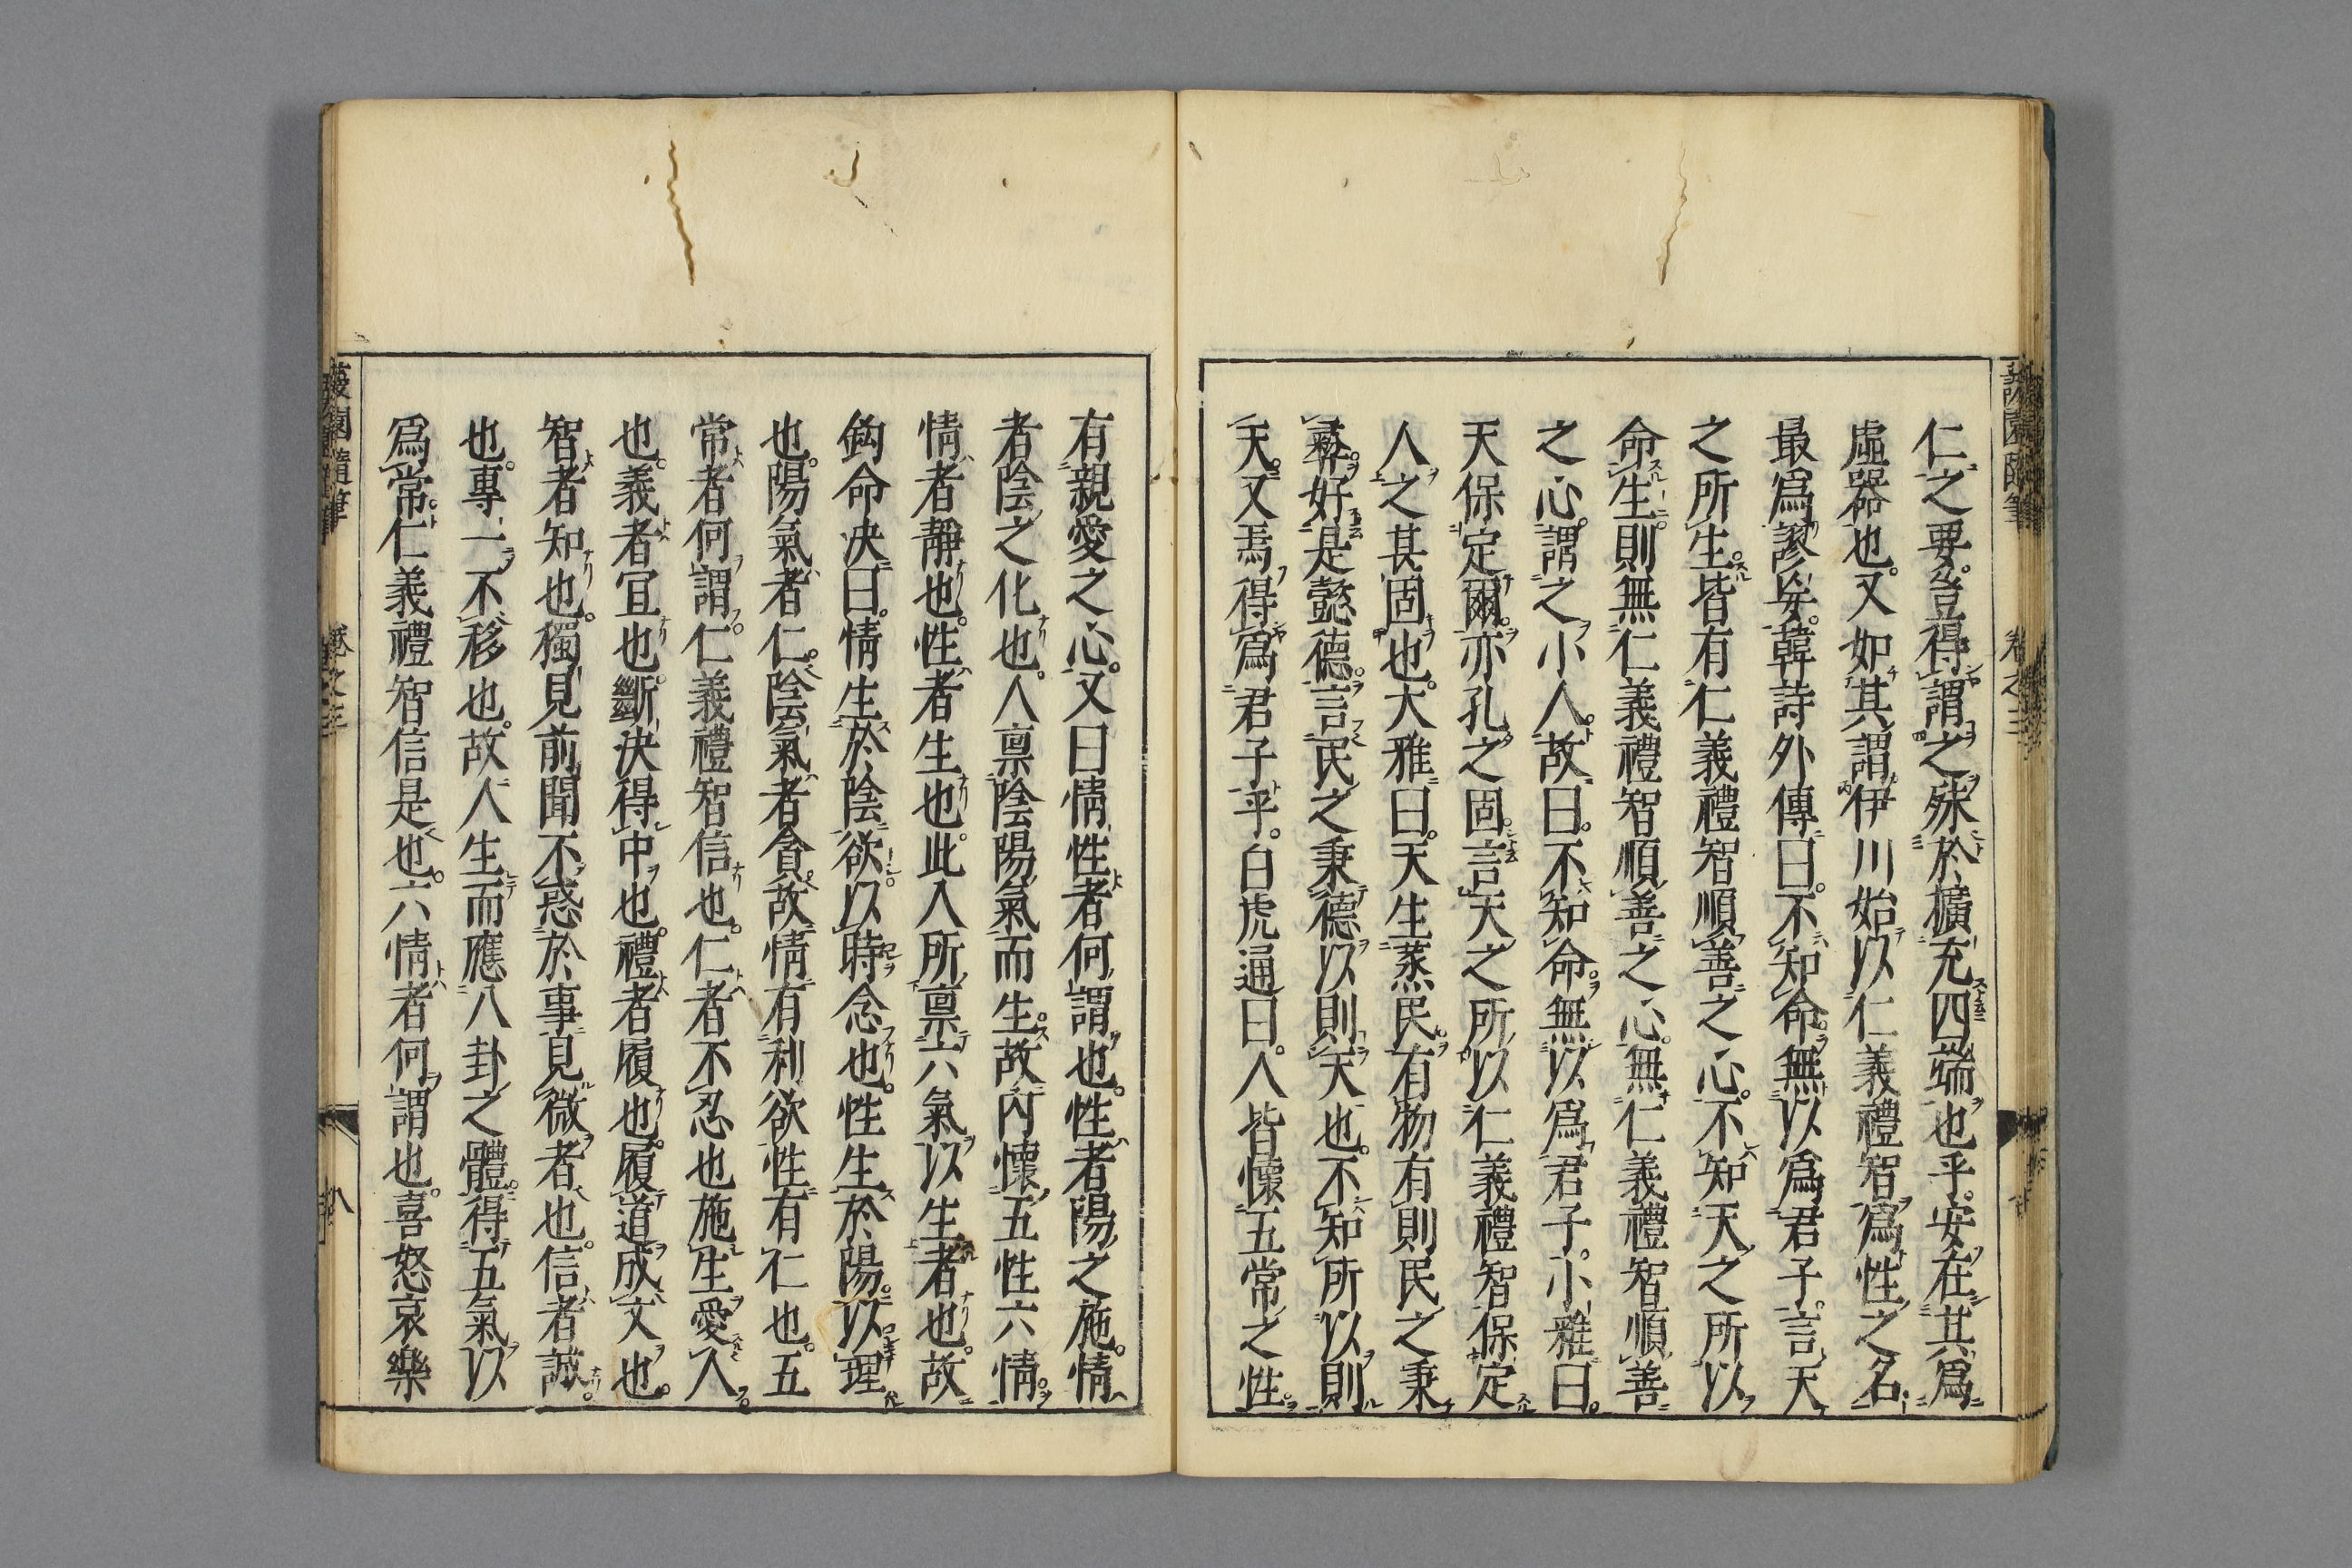 仁之要。豈得謂之殊於擴充四端也乎。安在其爲
虛器也。又如其謂伊川始以仁義禮智爲性之名
最爲謬妄。韓詩外傳曰。不知命無以爲君子。言天
之所生。皆有仁義禮智順善之心。不知天之所以
命生。則無仁義禮智順善之心。無仁義禮智順善
之心。謂之小人。故曰。不知命。無以爲君子。小雅曰。
天保定爾。亦孔之固。言天之所以仁義禮智保定
人之甚固也。大雅曰。天生蒸民。有物有則民之秉
彝。好是懿德。言民之秉德以則天也。不知所以則
天。又焉得爲君子乎。白虎通曰。人皆懷五常之性。
有親愛之心。又曰情性者何謂也。性者陽之施。情
者陰之化也。人禀陰陽氣而生。故内懷五性六情。
情者靜也。性者生也。此人所禀六氣以生者也。故
鈎命决曰。情生於陰。欲以時念也。性生於陽。以理
也。陽氣者仁。陰氣者貪。故情有利欲性有仁也。五
常者何謂。仁義禮智信也。仁者不忍也施生愛人
也。義者宜也。斷決得中也。禮者履也。履道成文也。
智者知也。獨見前聞不惑於事見微者也。信者誠
也。專一不移也。故人生而應八卦之體。得五氣以
爲常。仁義禮智信是也。六情者何謂也。喜怒哀樂
蘐園隨筆 卷之三 八